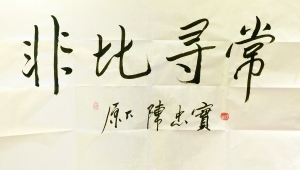 非比寻常
原下 陳忠實